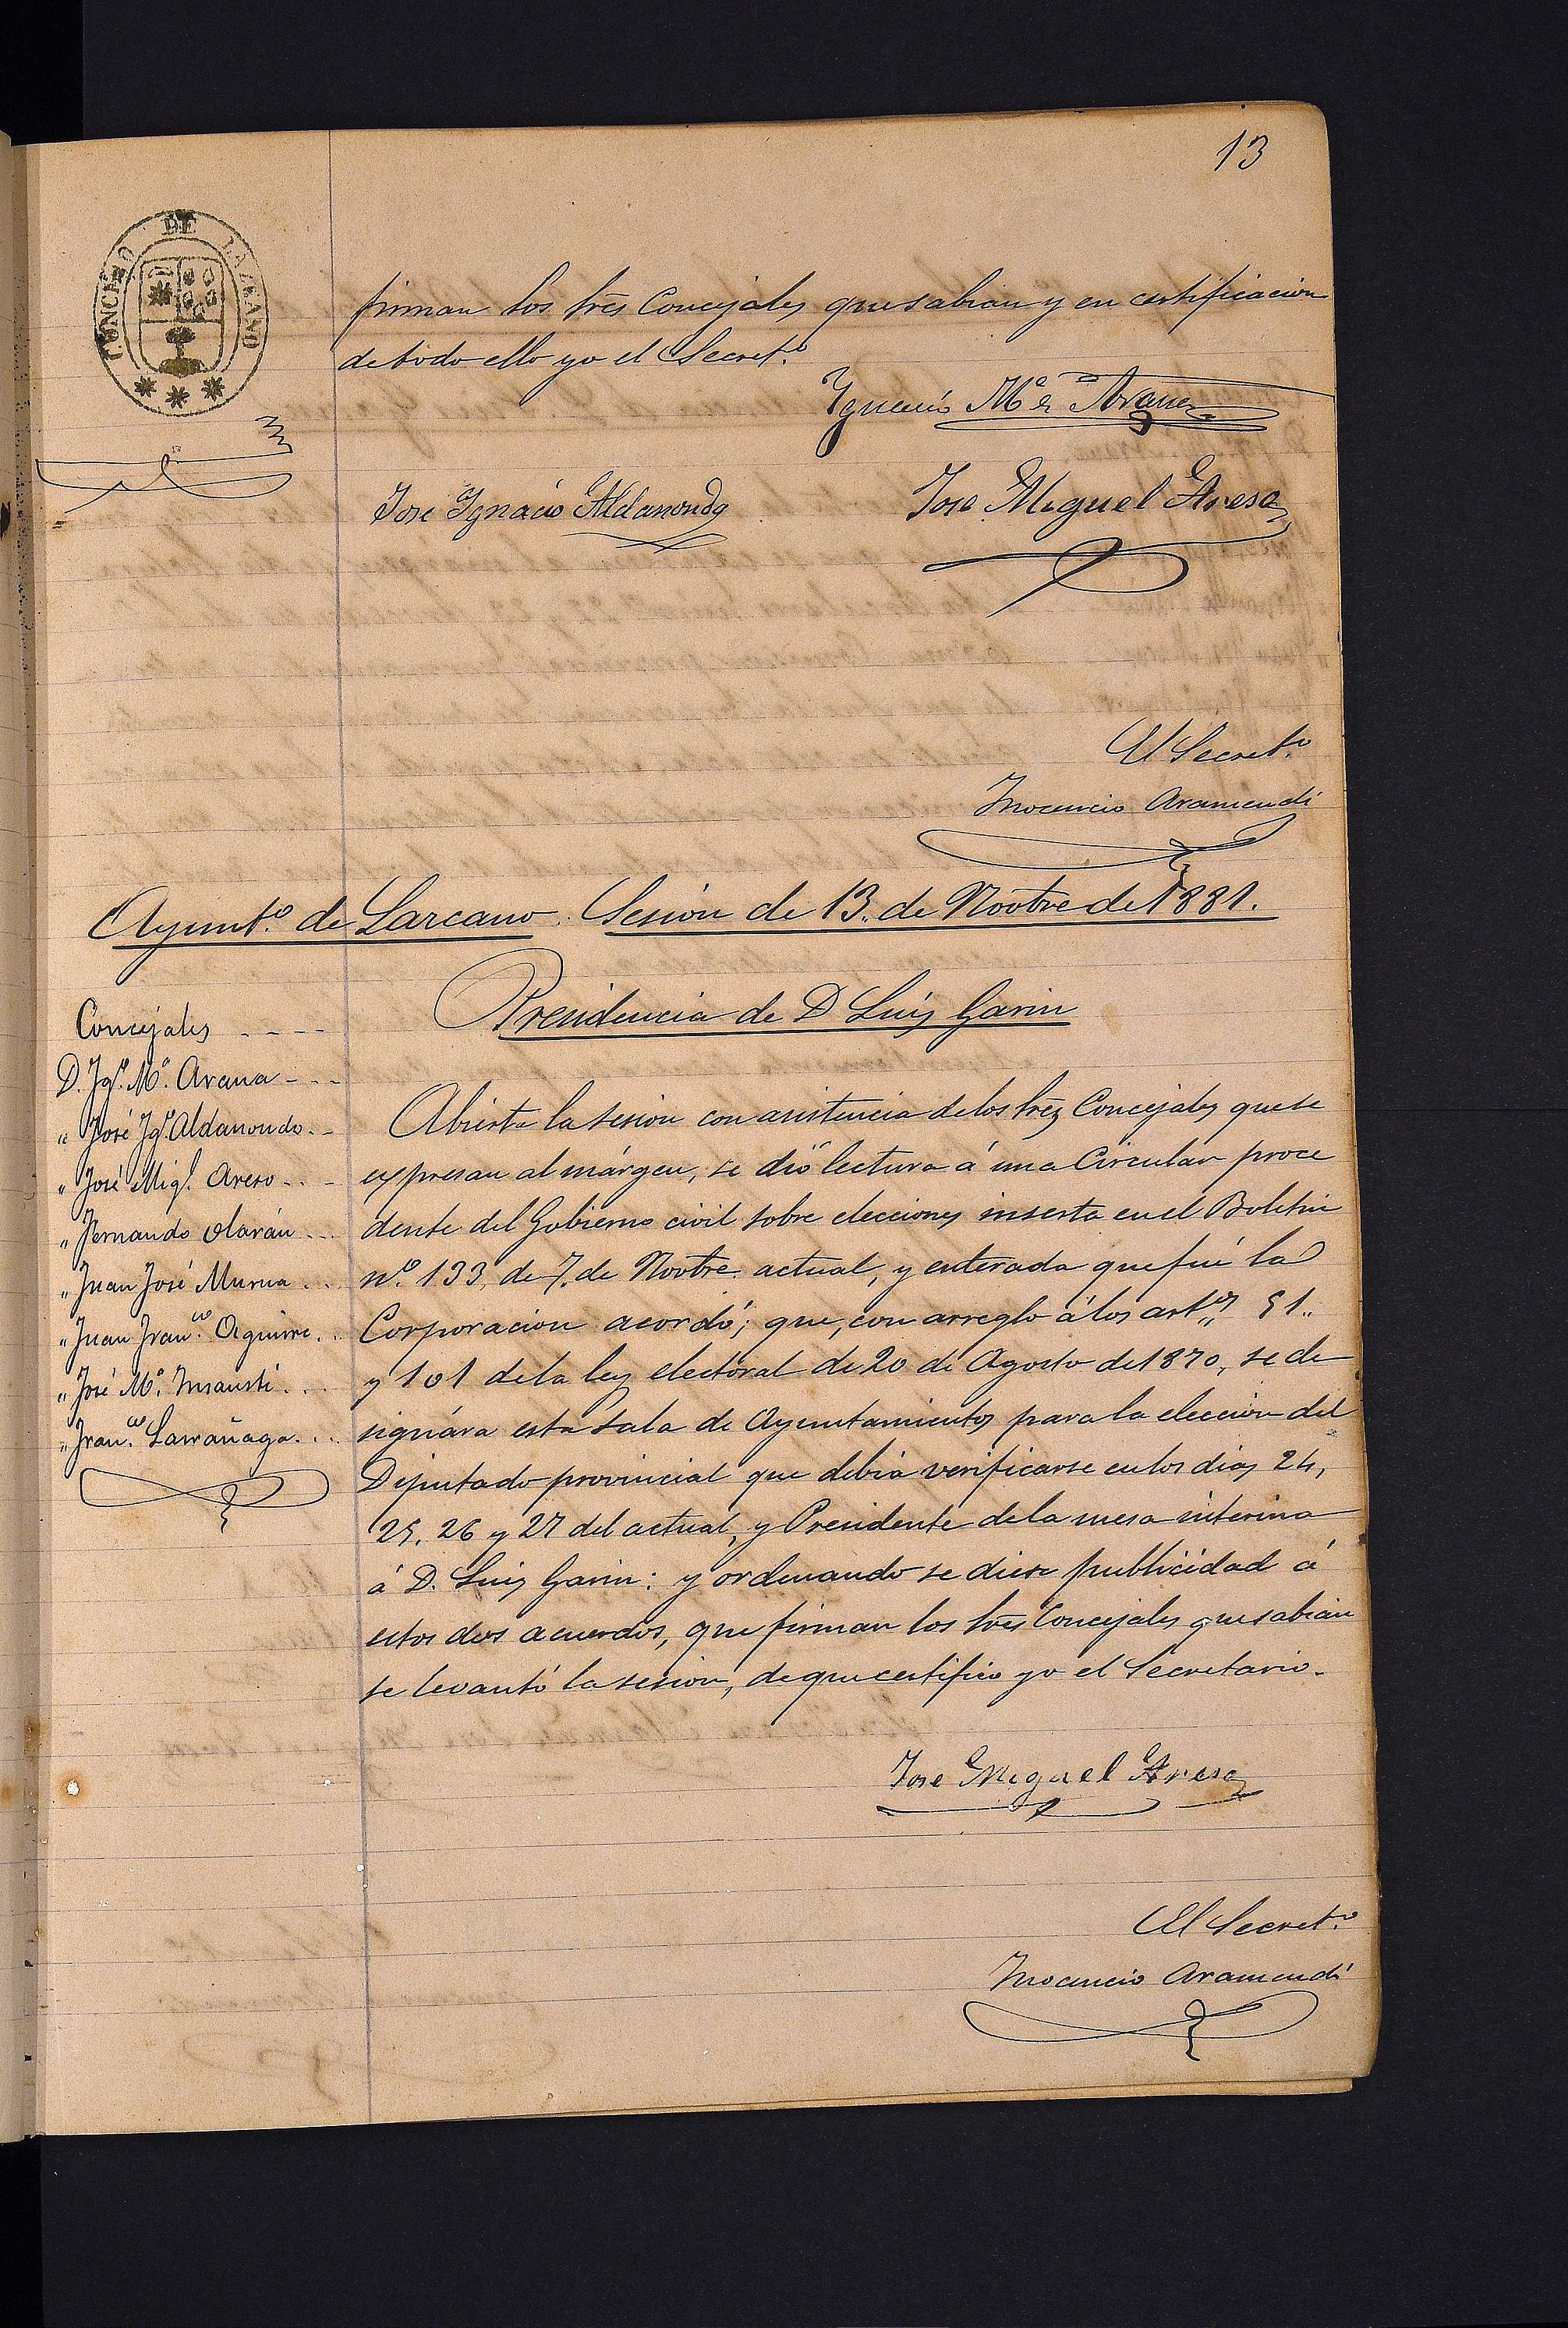 13
CONCEJO DE LAZCANO
firman los trés Concejales que sabian y en certificacion
de todo ello yo el Secret.º
Ygnacio M.ª Arana
Jose Ygnacio Aldanondo
Jose Miguel Areso
El Secret.º
Inocencio Aramendi
Ayunt.º de Larcano. Sesión de 13. de Novbre de 1881.
Presidencia de D Luis Garin
Concejales ----
D. Ig.º M.ª Arana ---
" José Ig.º Aldanondo. -
" José Mig.l Areso ..-
" Fernando Olarán ...
" Juan José Murua ...
" Juan Fran.co Aguirre ..
" José M.ª Insausti ....
" Fran.co Larrañaga. ...
Abierta la sesion con asistencia de los trés Concejales que se
expresan al márgen, se dió lectura á una Circular proce
dente del Gobierno civil sobre elecciones inserta en el Boletin
n.º 133, de 7. de Novbre. actual, y enterada que fué la
Corporacion acordó; que, con arreglo á los art.os 51..
y 101 de la ley electoral de 20 de Agosto de 1870, se de
signára esta Sala de Ayuntamientos para la eleccion del
Diputado provincial que debia verificarse en los dias 24,
25, 26 y 27 del actual, y Presidente de la mesa interina
á D. Luis Garin: y ordenando se diese publicidad á
estos dos acuerdos, que firman los trés Concejales que sabian
se levantó la sesion, de que certifico yo el Secretario.
Jose Miguel Areso
El Secret.º
Inocencio Aramendi